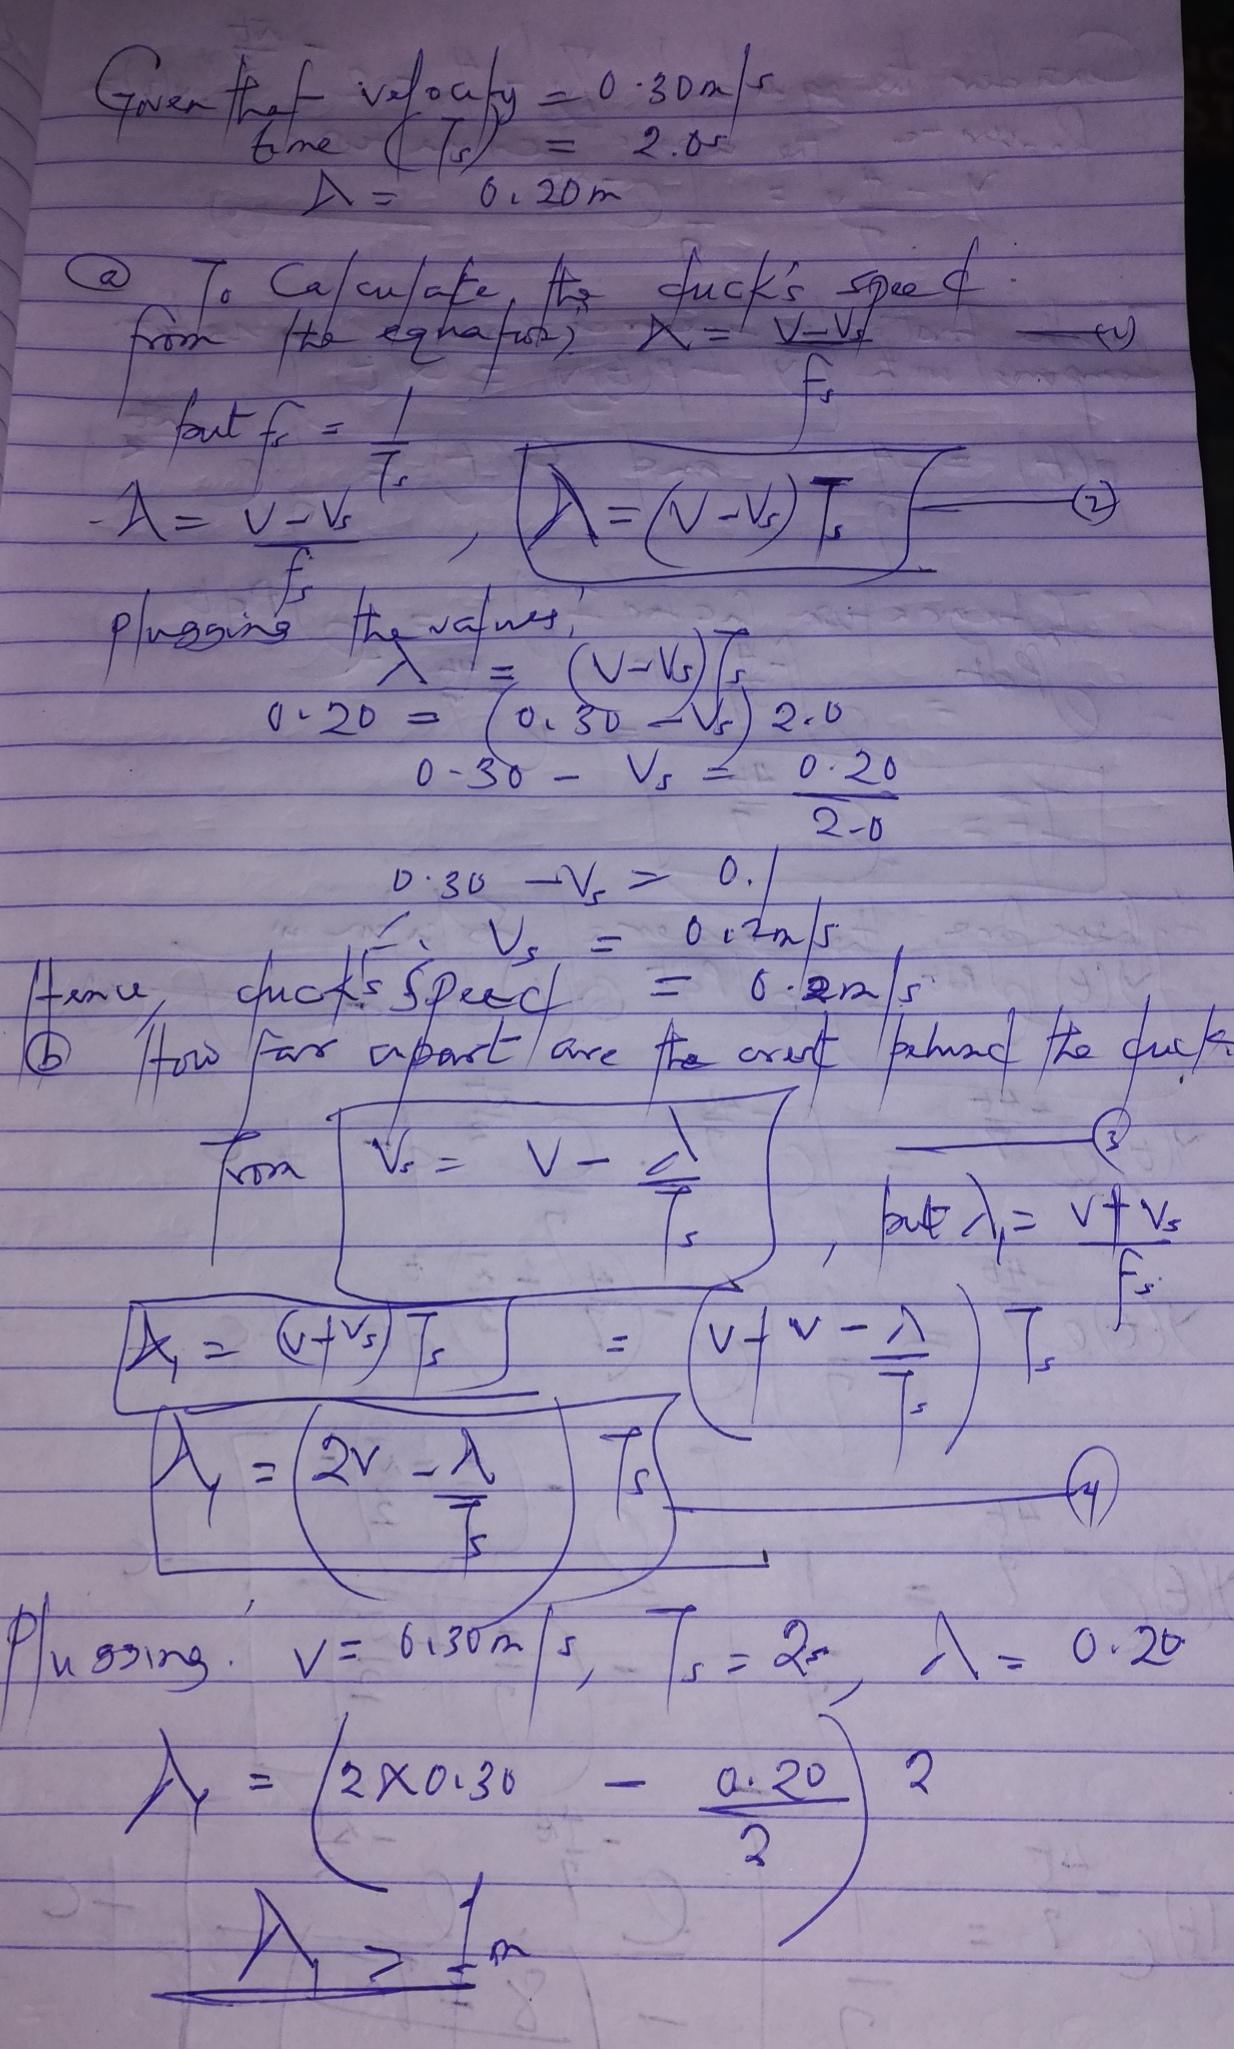 Given that velocity = 0.30m/s
time (Ts) = 2.0s
λ = 0.20m
(a) To Calculate, the duck's speed.
from the equation; λ = (V-Vs)/fs —(1)
but fs = 1/Ts
λ = (V-Vs)/fs , λ = (V-Vs)Ts —(2)
plugging the values;
λ = (V-Vs)Ts
0.20 = (0.30 - Vs) 2.0
0.30 - Vs = 0.20/2.0
0.30 - Vs = 0.1
∴ Vs = 0.2m/s
Hence, duck's Speed = 0.2m/s
(b) How far apart are the crest behind the duck
from Vs = V - λ/Ts —(3)
, but λ₁ = (V+Vs)/fs
λ₁ = (V+Vs)Ts = (V+V-λ/Ts) Ts
λ₁ = (2V - λ/Ts) Ts —(4)
Plugging. V = 0.30m/s, Ts = 2s, λ = 0.20
λ₁ = (2×0.30 - 0.20/2) 2
λ₁ = 1m